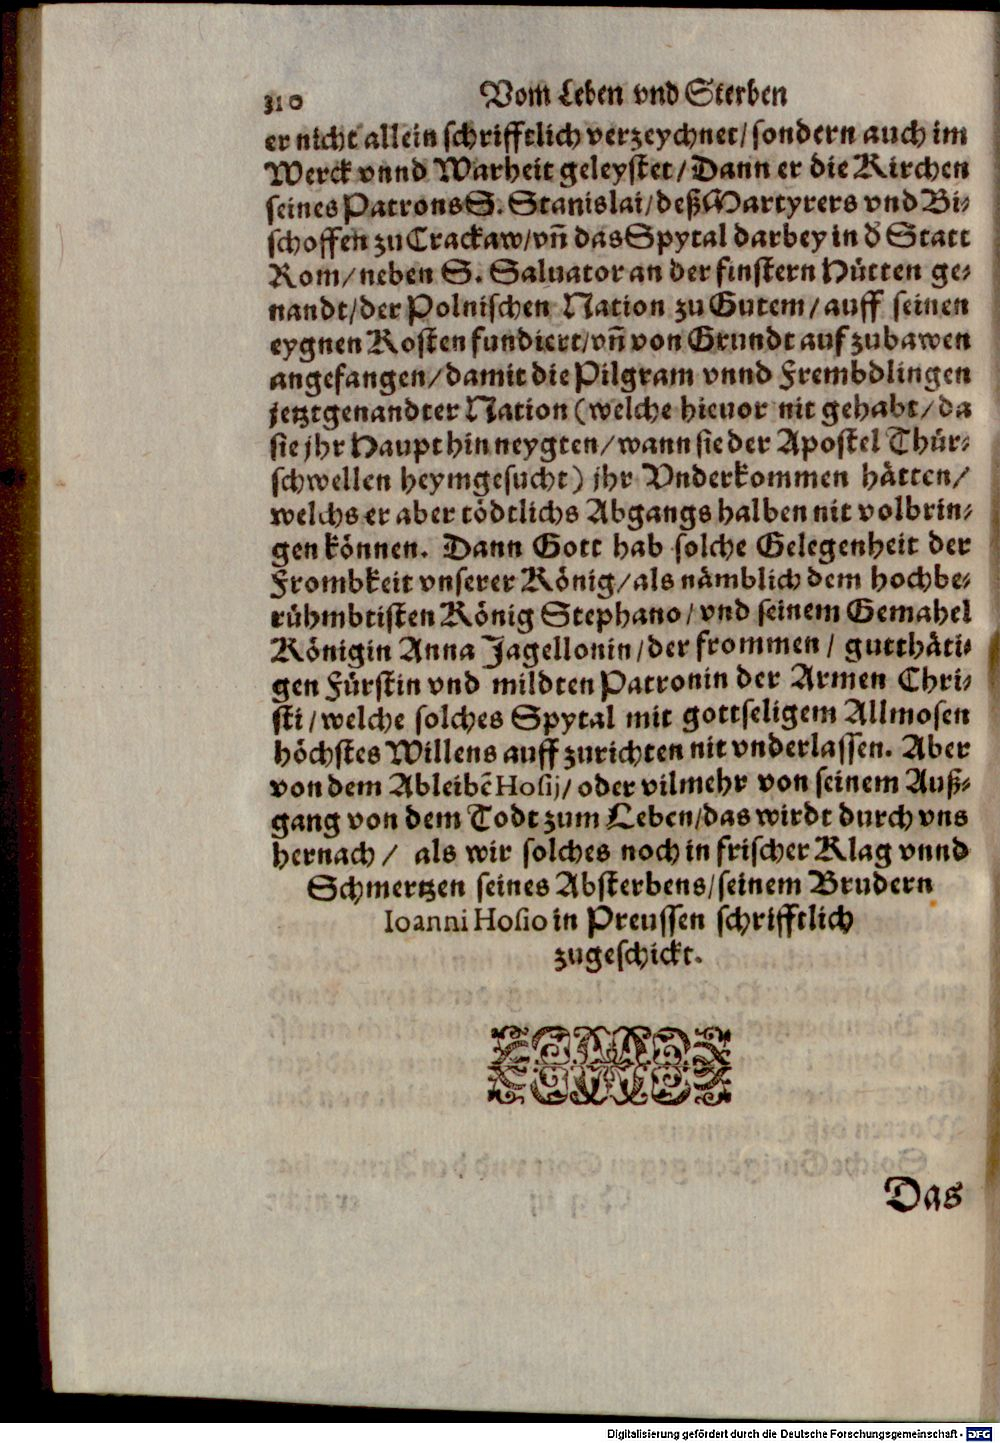 310 Vom Leben vnd Sterben
er nicht allein schrifftlich verzeychnet/ sondern auch im
Werck vnnd Warheit geleystet/ Dann er die Kirchen
seines Patrons S. Stanislai/ deß Martyrers vnd Bi-
schoffen zu Crackaw/ vñ das Spytal darbey in d̕ Statt
Rom/ neben S. Saluator an der finstern Hütten ge-
nandt/ der Polnischen Nation zu Gutem/ auff seinen
eygnen Kosten fundiert/ vñ von Grundt auf zubawen
angefangen/ damit die Pilgram vnnd Frembdlingen
jetztgenandter Nation (welche hieuor nit gehabt/ da
sie jhr Haupt hin neygten/ wann sie der Apostel Thür-
schwellen heymgesucht) jhr Vnderkommen hätten/
welchs er aber tödtlichs Abgangs halben nit volbrin-
gen können. Dann Gott hab solche Gelegenheit der
Frombkeit vnserer König/ als nämblich dem hochbe-
rühmbtisten König Stephano/ vnd seinem Gemahel
Königin Anna Jagellonin/ der frommen/ gutthäti-
gen Fürstin vnd mildten Patronin der Armen Chri-
sti/ welche solches Spytal mit gottseligem Allmosen
höchstes Willens auff zurichten nit vnderlassen. Aber
von dem Ableibẽ Hosij/ oder vilmehr von seinem Auß-
gang von dem Todt zum Leben/ das wirdt durch vns
hernach/ als wir solches noch in frischer Klag vnnd
Schmertzen seines Absterbens/ seinem Brudern
Ioanni Hosio in Preussen schrifftlich
zugeschickt.
Das
Digitalisierung gefördert durch die Deutsche Forschungsgemeinschaft - DFG